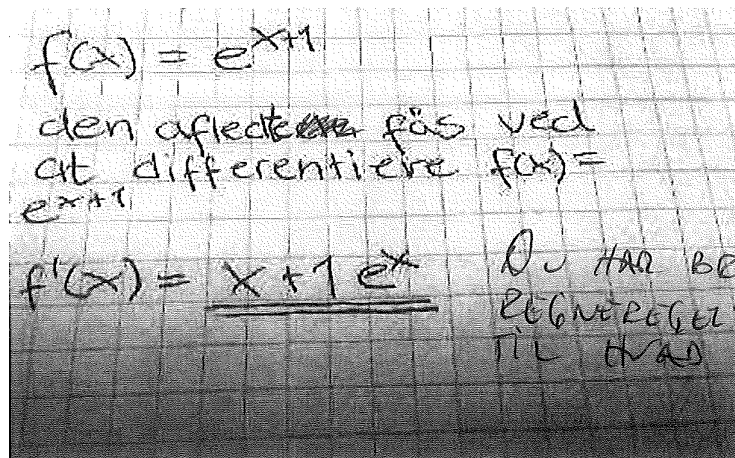 f(x) = e^{x+1}
den afledte fås ved
at differentiere f(x)=
e^{x+1}
f'(x) = x+1 e^x
DU HAR
REGNEREGEL
TIL HVAD